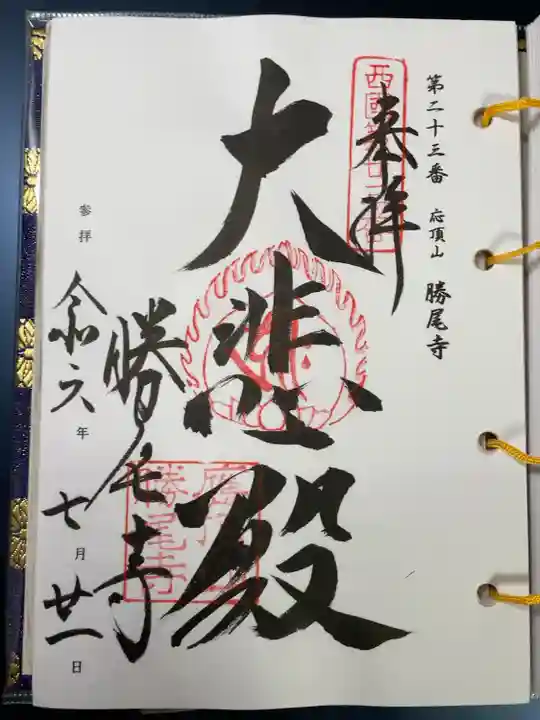 第二十三番 応頂山 勝尾寺
奉拝
西國第廿三番
大悲殿
勝尾寺
勝尾寺
参拝 令和六年七月廿一日